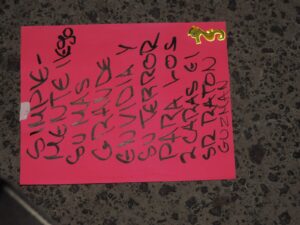 SIMPLE-
MENTE llego
SU MAS
GRANDE
ENVIDIA Y
SU TERROR
PARA LOS
2 CARAS El
SR RATON
GUZMAN